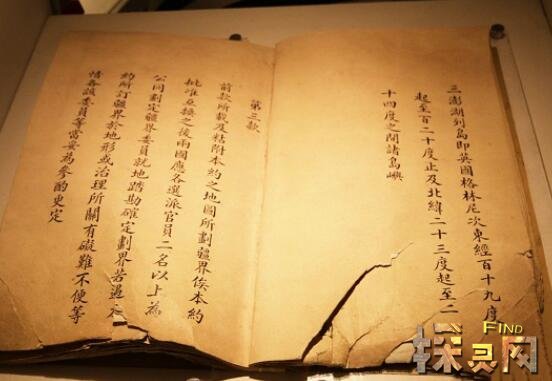 三澎湖列島即英國格林尼次東經百十九度
起至百二十度止及北緯二十三度起至二
十四度之間諸島嶼
第三款
前款所載及粘附本約之地圖所劃疆界俟本約
批准互換之後兩國應各選派官員二名以上為
公同劃定疆界委員就地踏勘確定劃界若遇本
約所訂疆界於地形或治理所關有礙難不便等
情各該委員等當妥為參酌更定
FIND
探灵网